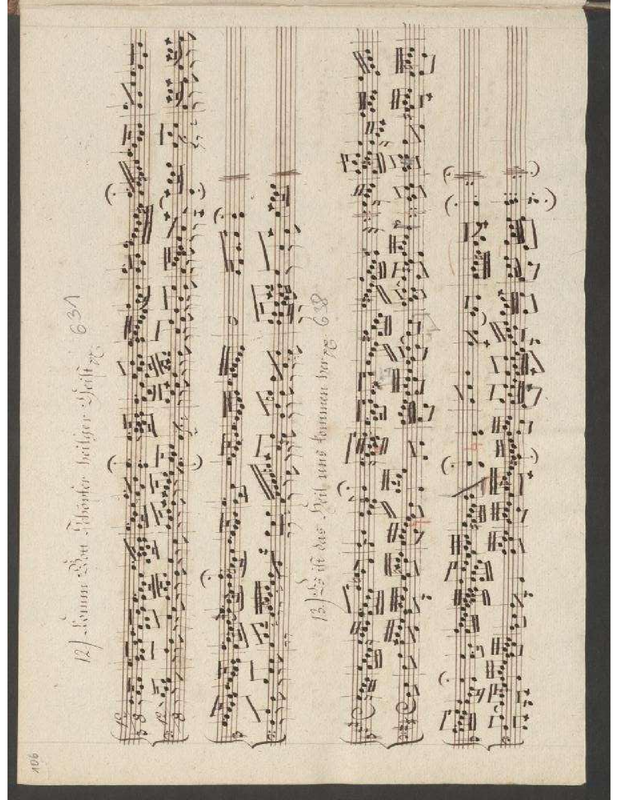 12) Komm Gott Schöpfer heilger Geist 631
13.) Es ist das Heil uns kommen her 638
106